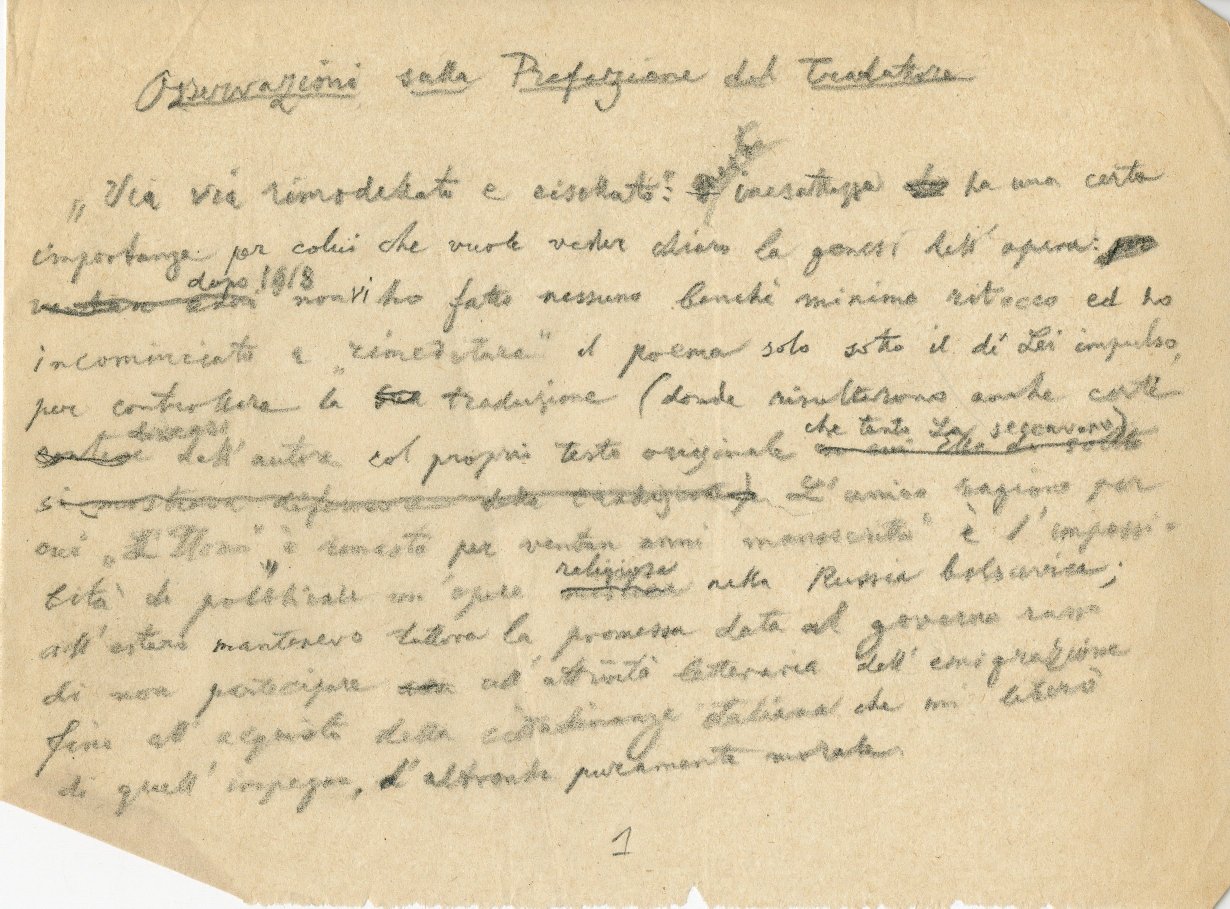 Osservazioni sulla Prefazione del Traduttore
„Via via rimodellato e cisellato": inesattezza ha una certa
importanza per colui che vuole veder chiaro la genesi dell'opera:
dopo 1918
non vi ho fatto nessuno benchè minimo ritocco ed ho
incominciato a „rimeditare" il poema solo sotto il di Lei impulso,
per controllare la sua traduzione (donde risultarono anche certi
divergenze
dell'autore col proprio testo originale
che tanto La segnavano)
si mostrava della tradizione). L'unica ragione per
cui „L'Uomo" „è rimasto per ventun anni manoscritto" è l'impossi-
bilità di pubblicare un'opera
religiosa
nella Russia bolscevica;
all'estero mantenevo tuttora la promessa data al governo russo
di non partecipare all'attività letteraria dell'emigrazione
fino all'acquisto della cittadinanza italiana che mi liberò
di quell'impegno, d'altronde puramente morale.
1